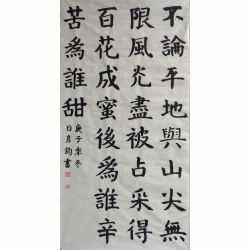 不論平地與山尖無
限風光盡被占采得
百花成蜜後為誰辛
苦為誰甜
庚子年冬
日彥鈞書